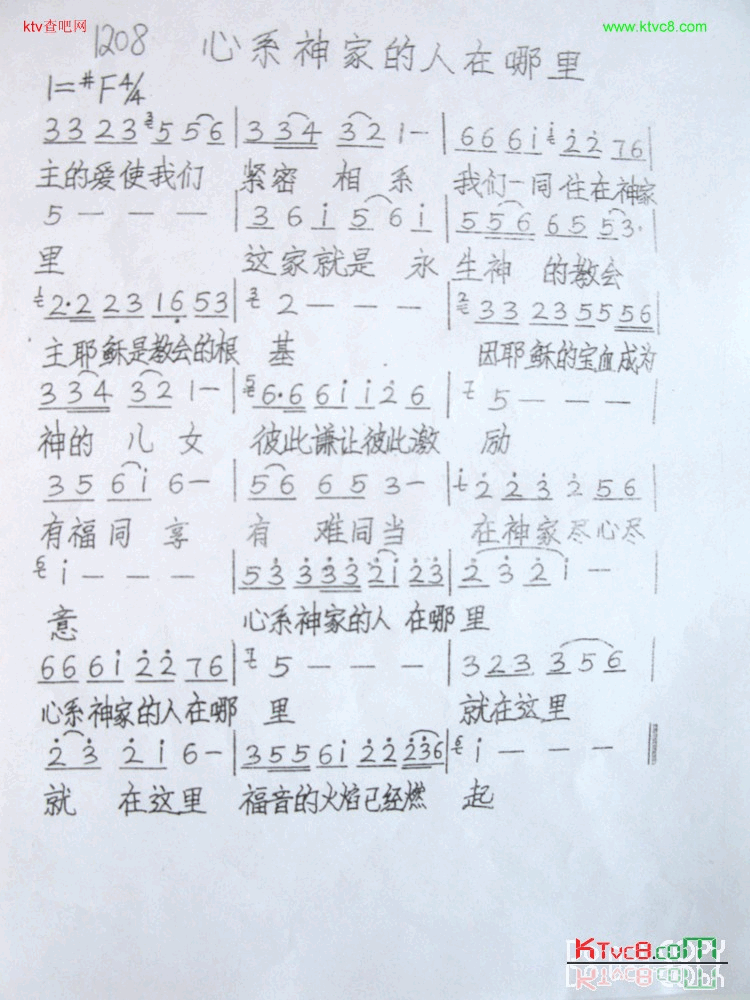 ktv查吧网
www.ktvc8.com
1208 心系神家的人在哪里
1=#F4/4
33 23 5 56 | 3 34 32 1 – | 66 6i 22 76
主的爱使我们 紧密 相系 我们一同住在神家
5 – – – | 3 6 i 5 6 i | 5 5 6 6 5 5 3 ·
里 这家就是 永生神 的教会
2·2 23 16 53 | 2 – – – | 33 23 55 556
主耶稣是教会的根 基 因耶稣的宝血成为
3 34 32 1 – | 6·6 6i i2 6 | 5 – – –
神的 儿女 彼此谦让彼此激 励
35 6i 6 – | 56 65 3 – | 2 23 2 56
有福同 享 有 难同当 在神家尽心尽
i – – – | 53 333 2i 23 | 2 3 2 i –
意 心系神家的人 在哪里
66 6i 22 76 | 5 – – – | 323 356
心系神家的人在哪 里 就在这里
23 2i 6 – | 3556i 22 236 | i – – –
就 在这里 福音的火焰已经燃 起
KTvc8.com